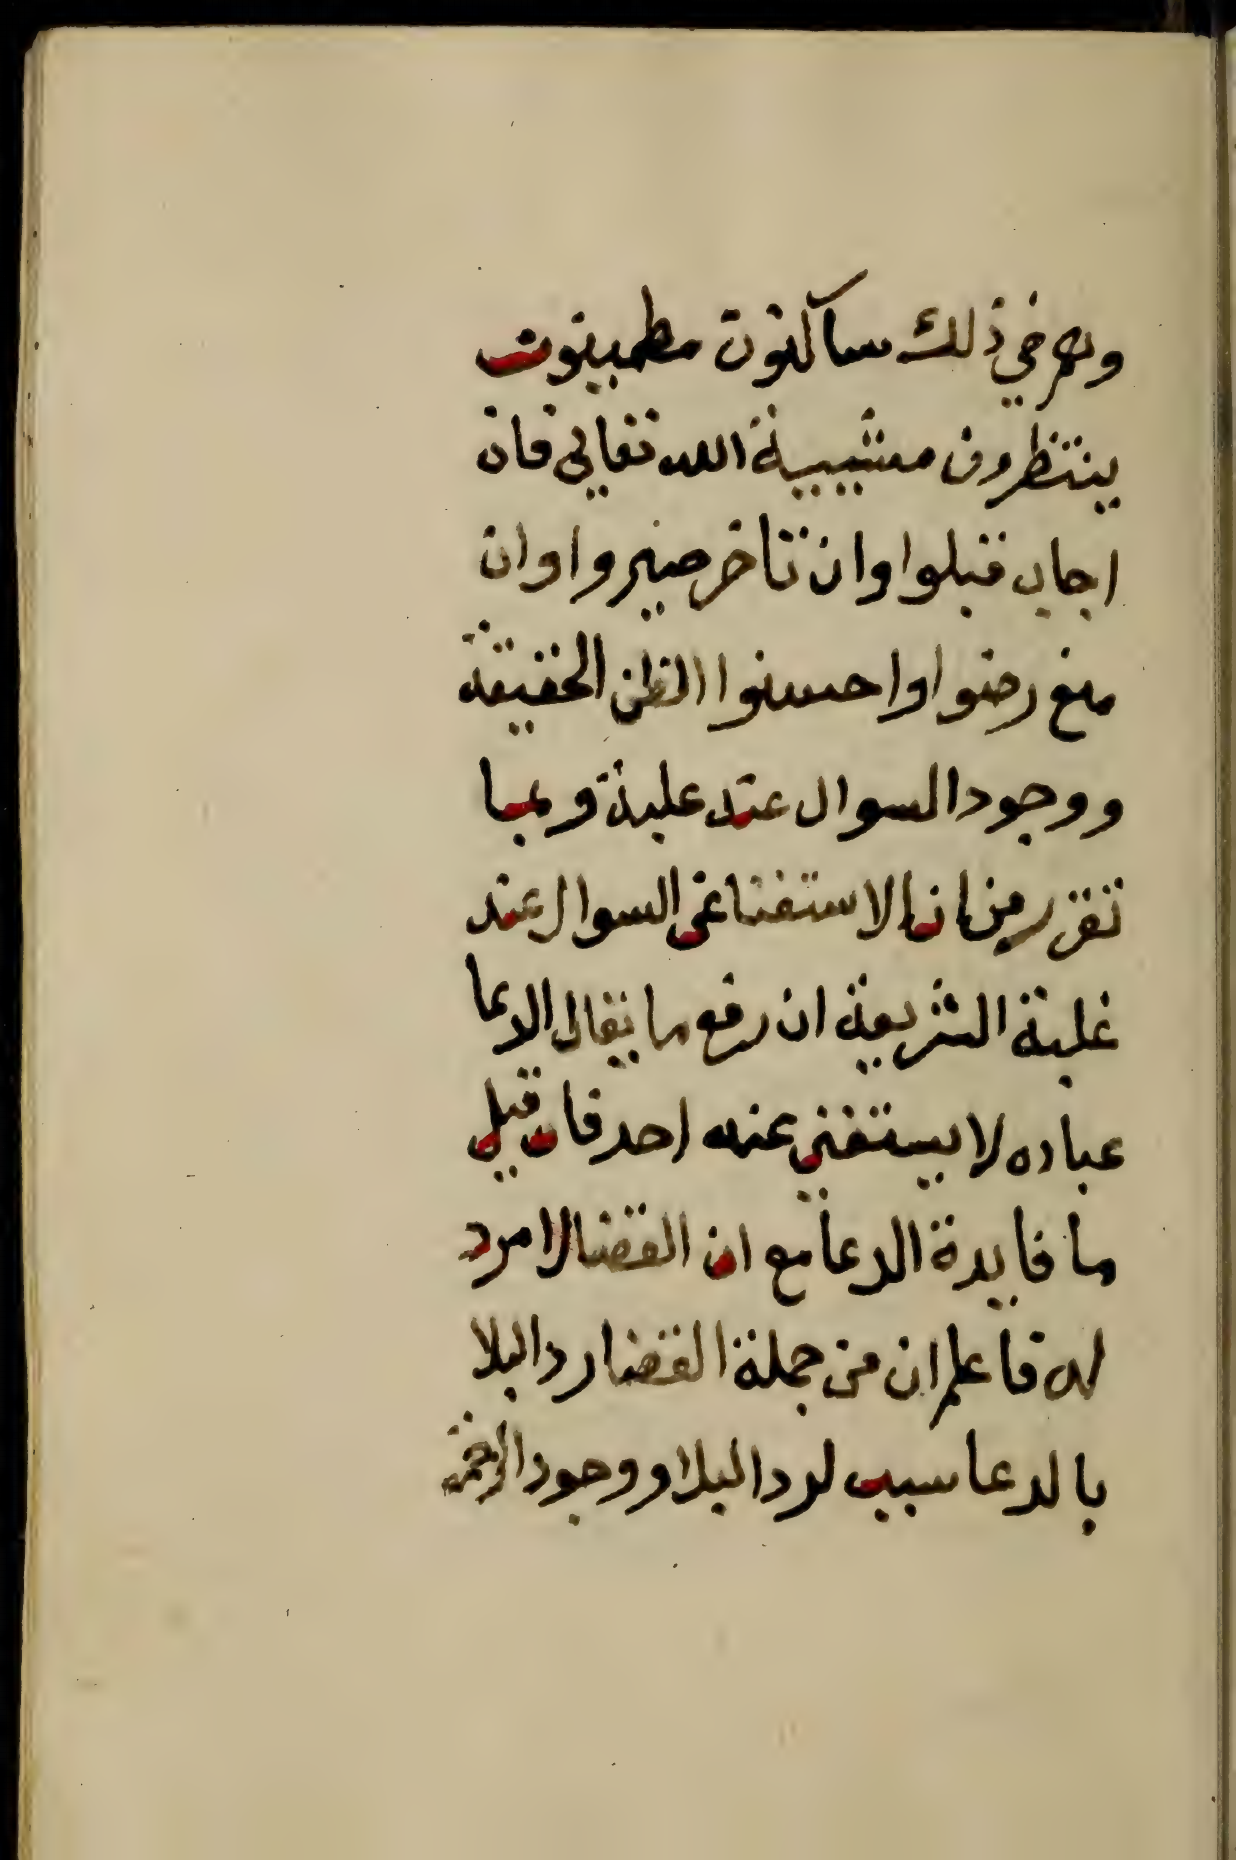 وهم في ذلك ساكنون مطمينون
ينتظرون مشيية الله تعالي فان
اجاب قبلوا وان تاخر صبروا وان
منع رضوا واحسنوا الظن الحقيقة
ووجود السوال عند غلبة وبما
تقرر من ان الاستغنا عن السوال عند
غلبة الشريعة ان رفع ما يقال الدعا
عباده لا يستغني عنه احد فان قيل
ما فايدة الدعا مع ان القضا لا مرد
له فاعلم ان من جملة القضا رد البلا
بالدعا سبب لرد البلا ووجود الرحمة